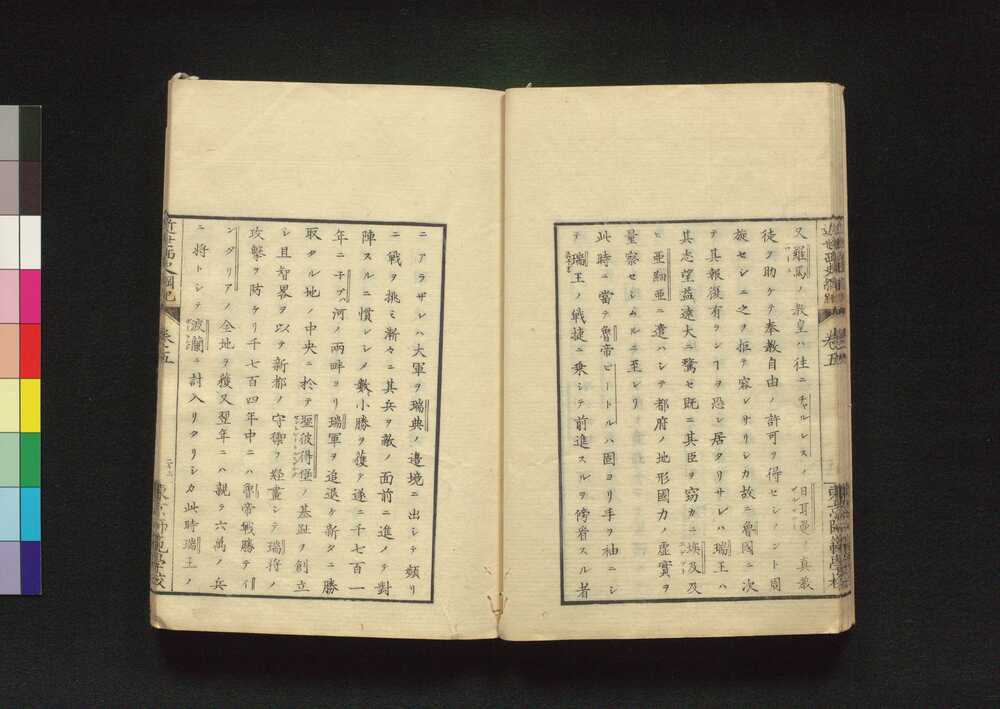 又羅馬ノ教皇ハ往ニチャルレスノ日耳曼ノ真教
徒ヲ助ケテ奉教自由ノ許可ヲ得セシメント周
旋セシニ之ヲ拒テ容レサリシカ故ニ魯國ニ次
テ其報復有ランヿヲ恐レ居タリサレハ瑞王ハ
其志望益遠大ニ騖セ既ニ其臣ヲ窈カニ埃及及
ヒ亜細亜ニ遣ハシテ都府ノ地形國力ノ虚實ヲ
量察セシムルニ至レリ
此時ニ當テ魯帝ピートルハ固ヨリ手ヲ袖ニシ
テ瑞王ノ戦捷ニ乗シテ前進スルヲ傍看スル者
近世西史綱紀 卷五 東京師範學校
ニアラザレハ大軍ヲ瑞典ノ邉境ニ出シテ頻リ
ニ戦ヲ挑ミ漸々ニ其兵ヲ敵ノ面前ニ進メテ對
陣スルニ慣レシメ數小勝ヲ獲テ遂ニ千七百一
年ニ子ブハ河ノ兩畔ヨリ瑞軍ヲ追退ケ新タニ勝
取タル地ノ中央ニ於テ聖彼得堡ノ基趾ヲ創立
シ且智畧ヲ以テ新都ノ守禦ヲ經畫シテ瑞将ノ
攻擊ヲ防ケリ千七百四年中ニハ魯帝戦勝テイ
ンダリアノ全地ヲ獲又翌年ニハ親ラ六萬ノ兵
ニ將トシテ波瀾ニ討入リタリシカ此時瑞王ノ
近世西史綱紀 卷五 東京師範學校